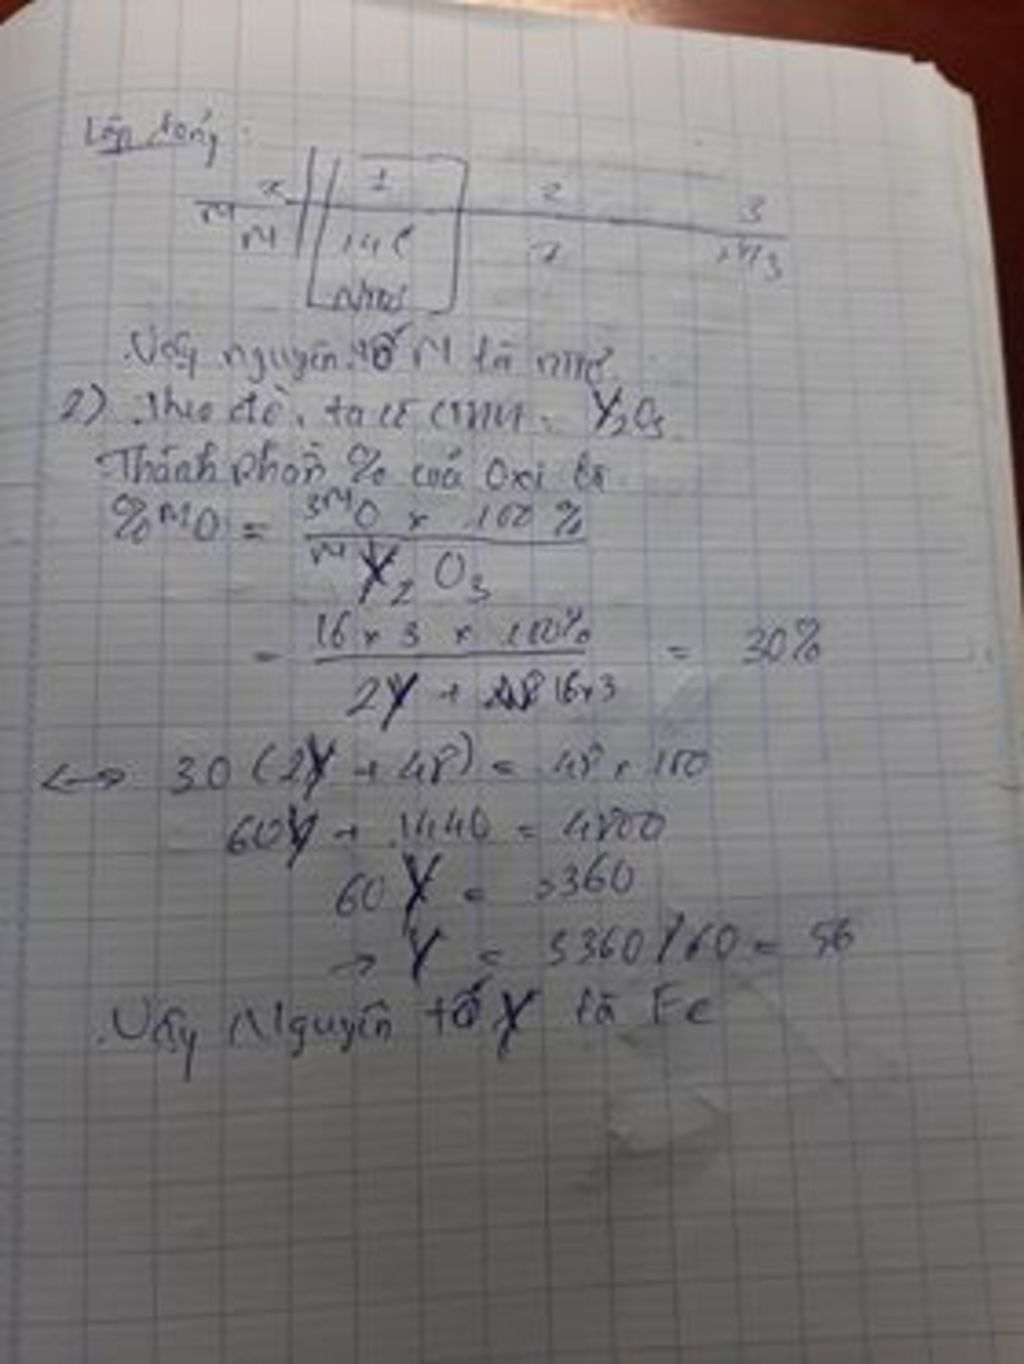 Lập bảng:
x 1 2 3
M
Vậy nguyên tố M là
2) Theo đề, ta có CTHH: Y₂O₃
Thành phần % của Oxi là
%MO = 3MO × 100%
MY₂O₃
= 16 × 3 × 100% = 30%
2Y + 16×3
<-> 30 (2Y + 48) = 48 × 100
60Y + 1440 = 4800
60Y = 3360
-> Y = 3360/60 = 56
Vậy Nguyên tố Y là Fe